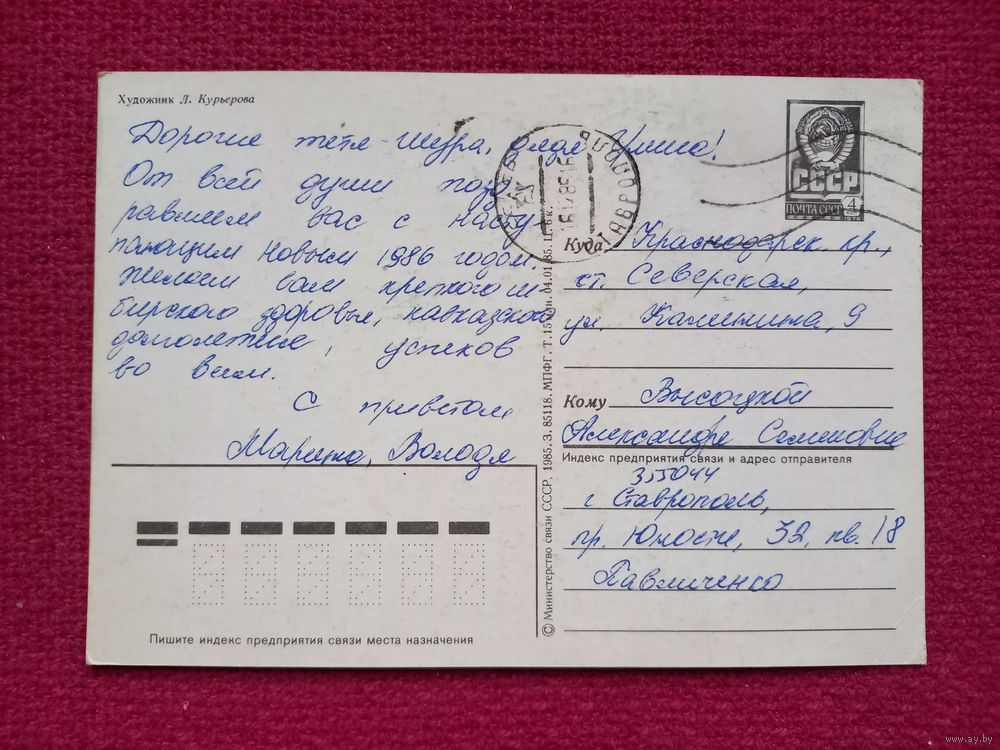 Художник Л. Курьерова
Дорогие тётя Шура, дядя Миша!
От всей души позд-
равляем вас с насту-
пающим Новым 1986 годом.
Желаем вам крепкого си-
бирского здоровья, кавказского
долголетия, успехов
во всём.
С приветом,
Марина, Володя
СССР
ПОЧТА СССР
4
1976
СТАВРОПОЛЬ
Куда Краснодарск. кр.,
ст. Северская,
ул. Калинина, 9
Кому Высоцкой
Александре Семеновне
Индекс предприятия связи и адрес отправителя
355044
г. Ставрополь,
пр. Юности, 32, кв. 18
Павличенко
© Министерство связи СССР, 1985. З. 85118. МПФГ. Т. 15 млн. 04.01.85. Ц. 6 к.
Пишите индекс предприятия связи места назначения
www.ay.by